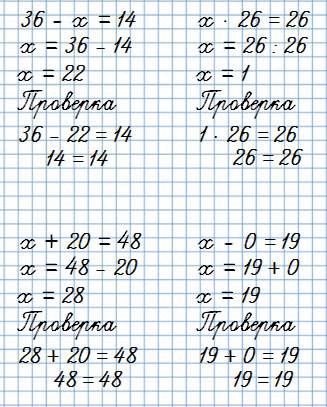 36 - x = 14
x = 36 - 14
x = 22
Проверка
36 - 22 = 14
14 = 14
x · 26 = 26
x = 26 : 26
x = 1
Проверка
1 · 26 = 26
26 = 26
x + 20 = 48
x = 48 - 20
x = 28
Проверка
28 + 20 = 48
48 = 48
x - 0 = 19
x = 19 + 0
x = 19
Проверка
19 + 0 = 19
19 = 19